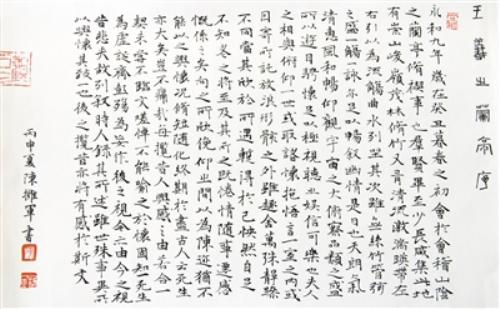 王羲之蘭亭序
永和九年歲在癸丑暮春之初會於會稽山陰
之蘭亭脩稧事也群賢畢至少長咸集此地
有崇山峻嶺茂林脩竹又有清流激湍暎帶左
右引以為流觴曲水列坐其次雖無絲竹管弦
之盛一觴一詠亦足以暢敘幽情是日也天朗氣
清惠風和暢仰觀宇宙之大俯察品類之盛
所以遊目騁懷足以極視聽之娛信可樂也夫人
之相與俯仰一世或取諸懷抱悟言一室之內或
因寄所託放浪形骸之外雖趣舍萬殊靜躁
不同當其欣於所遇暫得於己快然自足
不知老之將至及其所之既惓情隨事遷感
慨係之矣向之所欣俛仰之間以為陳迹猶不
能以之興懷況脩短隨化終期於盡古人云死生
亦大矣豈不痛哉每攬昔人興感之由若合一
契未嘗不臨文嗟悼不能喻之於懷固知一死生
為虛誕齊彭殤為妄作後之視今亦由今之視
昔悲夫故列敘時人錄其所述雖世殊事異所
以興懷其致一也後之攬者亦將有感於斯文
丙申夏陳維軍書